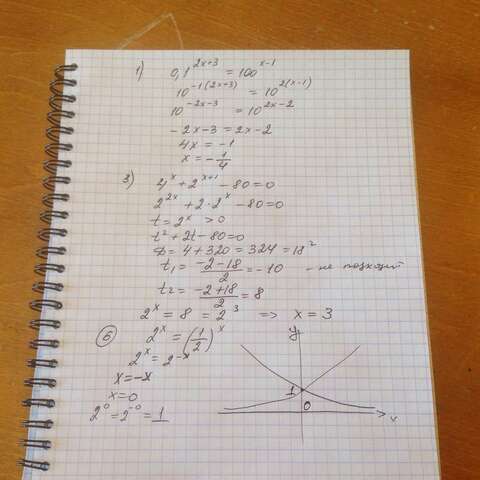 1) 0,1^{2x+3} = 100^{x-1}
10^{-1(2x+3)} = 10^{2(x-1)}
10^{-2x-3} = 10^{2x-2}
-2x-3 = 2x-2
4x = -1
x = -\frac{1}{4}
3) 4^x + 2^{x+1} - 80 = 0
2^{2x} + 2 \cdot 2^x - 80 = 0
t = 2^x > 0
t^2 + 2t - 80 = 0
D = 4 + 320 = 324 = 18^2
t_1 = \frac{-2-18}{2} = -10 - не подходит
t_2 = \frac{-2+18}{2} = 8
2^x = 8 = 2^3 => x = 3
6 2^x = (\frac{1}{2})^x
2^x = 2^{-x}
x = -x
x = 0
2^0 = 2^{-0} = 1
y
1
0
x